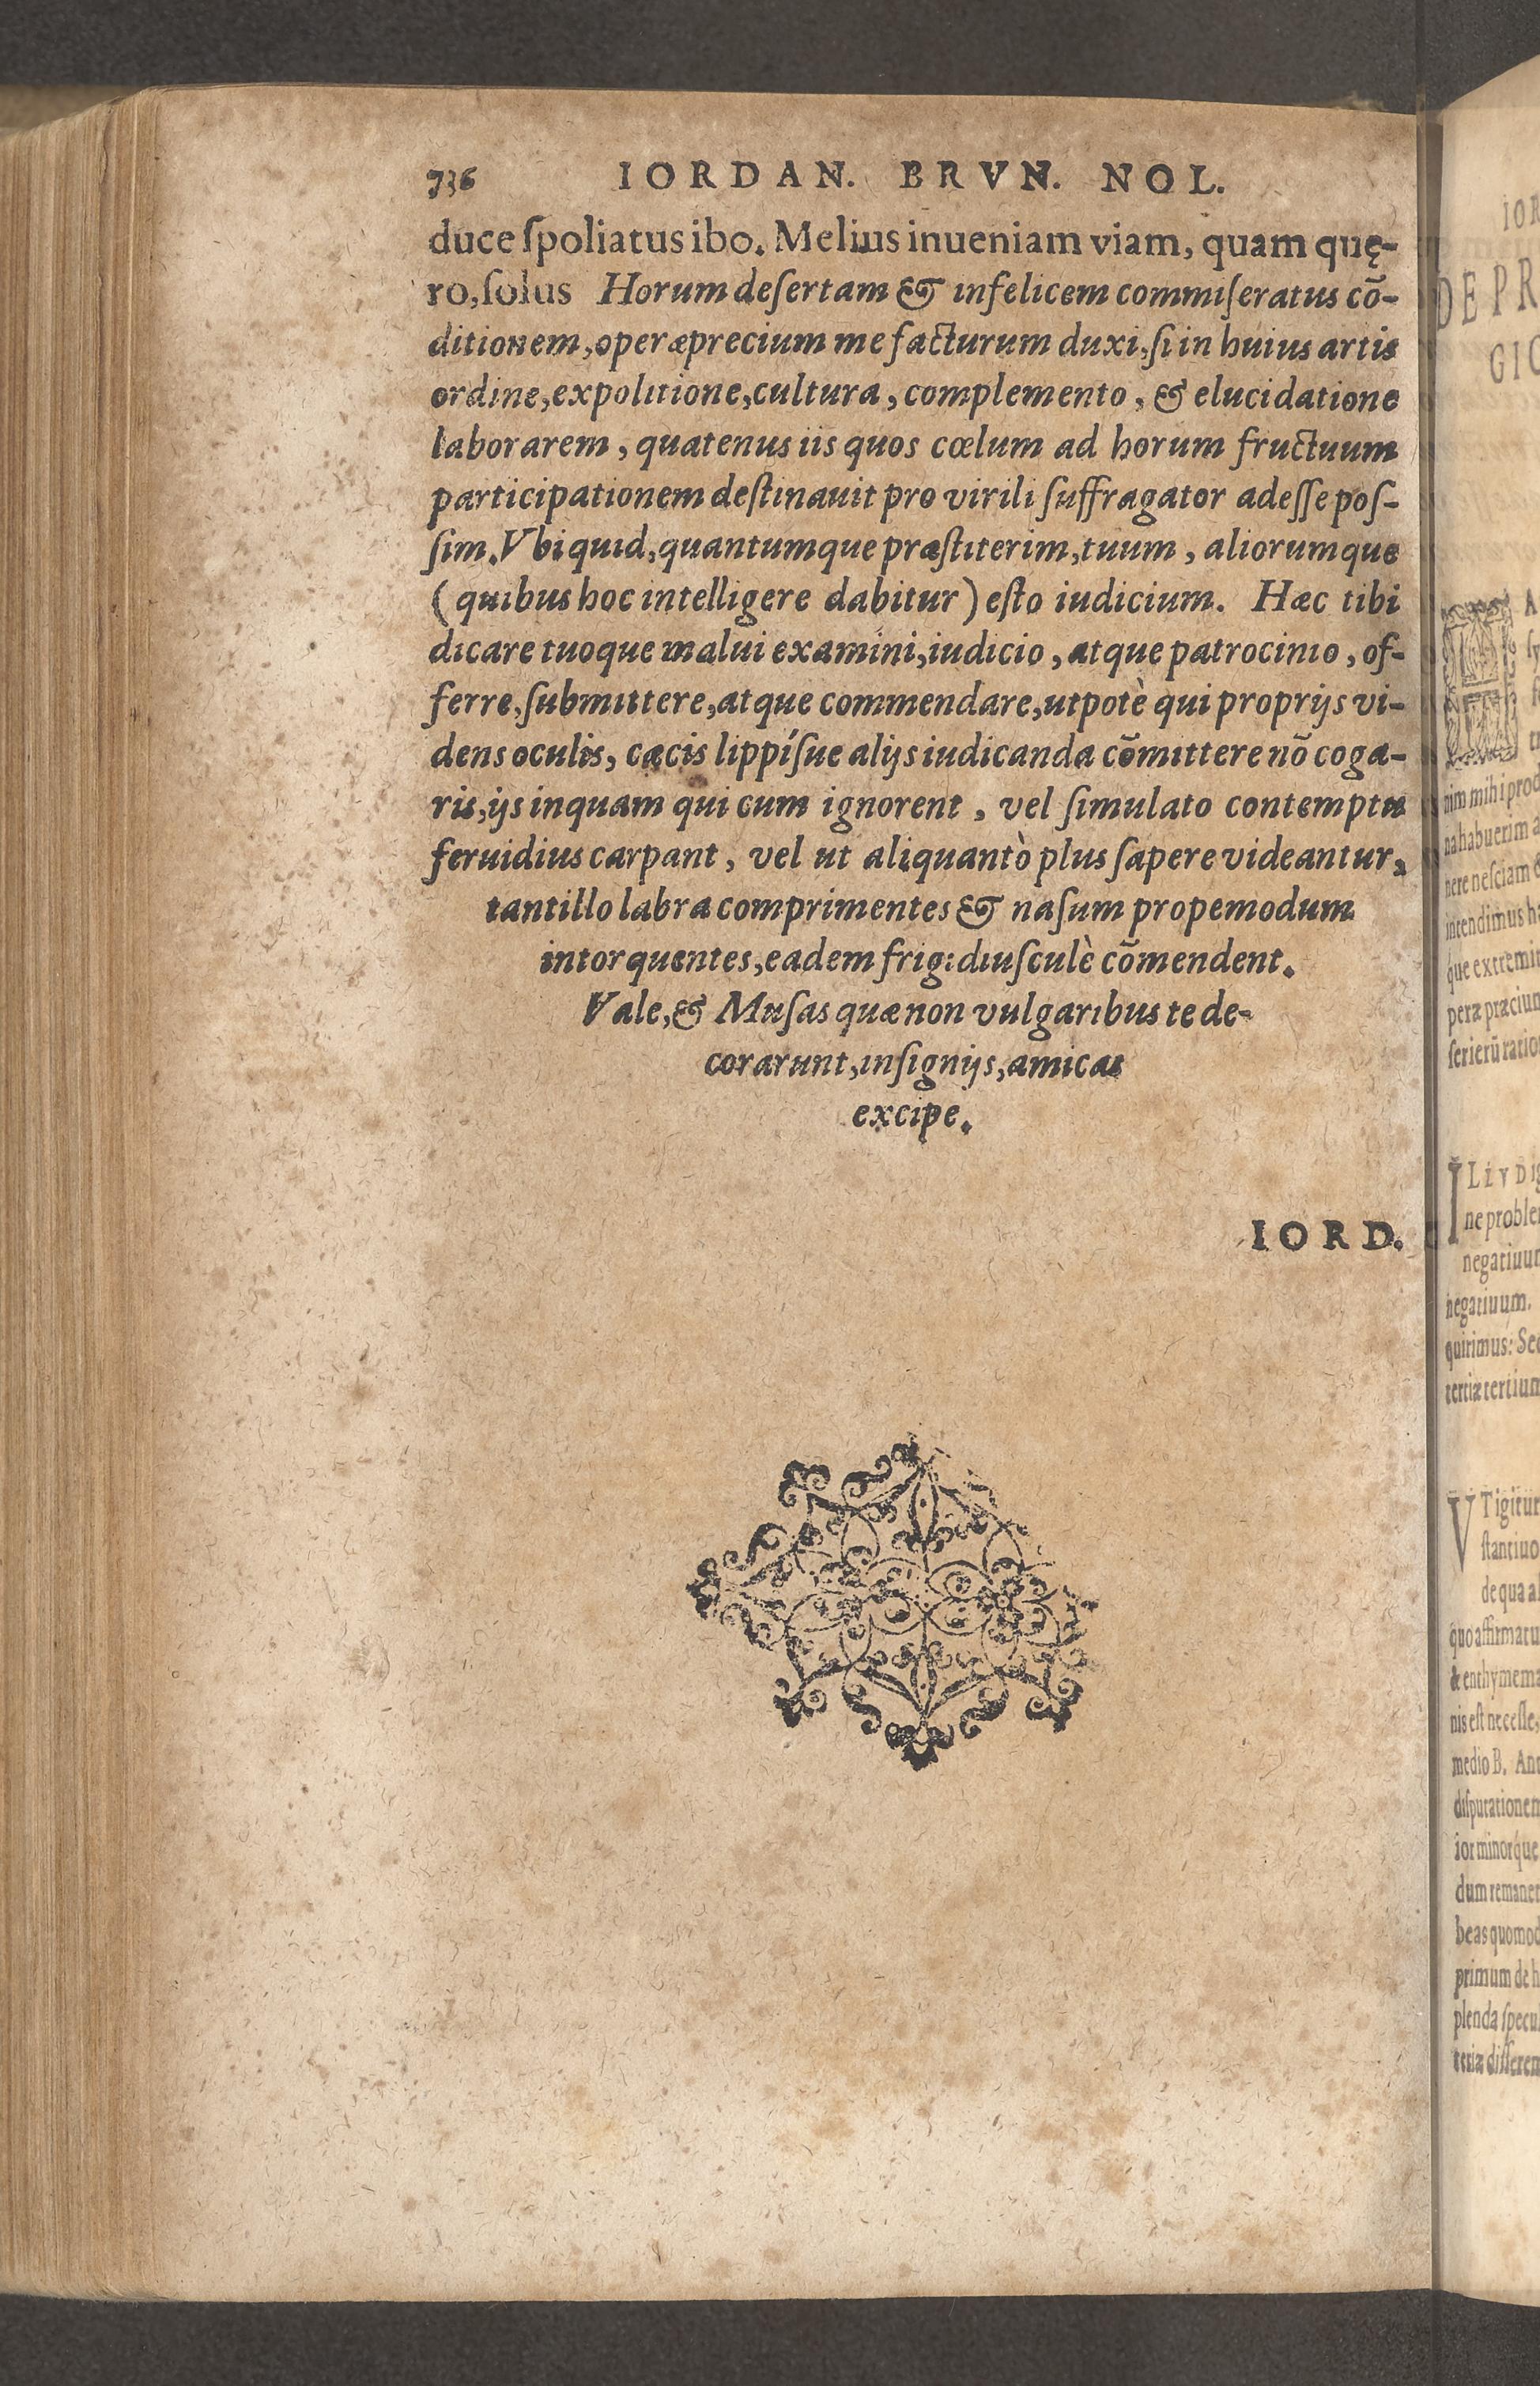 736 IORDAN. BRVN. NOL.
duce ſpoliatus ibo. Melius inueniam viam, quam quę-
ro, ſolus Horum deſertam & infelicem commiſeratus cō-
ditionem, operæprecium me facturum duxi, ſi in huius artis
ordine, expolitione, cultura, complemento, & elucidatione
laborarem, quatenus iis quos cœlum ad horum fructuum
participationem deſtinauit pro virili ſuffragator adeſſe poſ-
ſim. Vbi quid, quantumque præſtiterim, tuum, aliorumque
(quibus hoc intelligere dabitur) eſto iudicium. Hæc tibi
dicare tuoque malui examini, iudicio, atque patrocinio, of-
ferre, ſubmittere, atque commendare, utpotè qui proprijs vi-
dens oculis, cæcis lippíſue alijs iudicanda cōmittere nō coga-
ris, ijs inquam qui cum ignorent, vel ſimulato contemptu
feruidius carpant, vel ut aliquantò plus ſapere videantur,
tantillo labra comprimentes & naſum propemodum
intorquentes, eadem frigidiuſculè cōmendent.
Vale, & Muſas quæ non vulgaribus te de-
corarunt, inſignijs, amicas
excipe.
IORD.
IOR
DE PR
GIO
A
nim mihi prod
na habuerim a
nere neſciam
intendimus h
que extremi
peræ præcium
ſerierū ratio
ILLVD
ne proble
negatiuum
negatiuum.
quirimus: Sec
tertiæ tertium
VT igitur
ſtantiuo
de qua a
quo affirmatu
& enthymema
nis eſt neceſſe,
medio B. Ant
diſputationem
ior minorque
dum remanet
beas quomod
primum de h
plenda ſpecu
teriæ differen